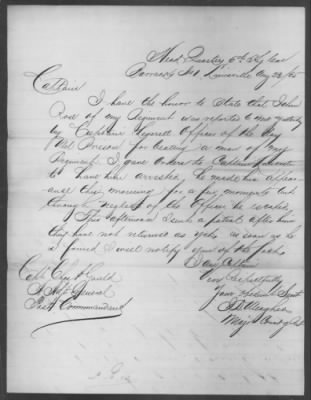 Head Quarters 5th Ky Cav
Barracks No 1 Louisville Aug 28/65
Captain
I have the honor to State that John
Rose of my Regiment was reported to me
by Captain Officer of the Day
Mil Prison for a man of my
Regiment. I gave orders to
to have him arrested, he made his appear-
ance this morning for a few moments but
through neglect of the Officer he escaped,
This afternoon I sent a patrol after him
they have not returned as yet, as soon as he
is found I will notify you of the fact
I am Captain
very Respectfully
Your Obedient Servt
Maj Comdg
Capt Gould
A Adjt General
Post Commandant